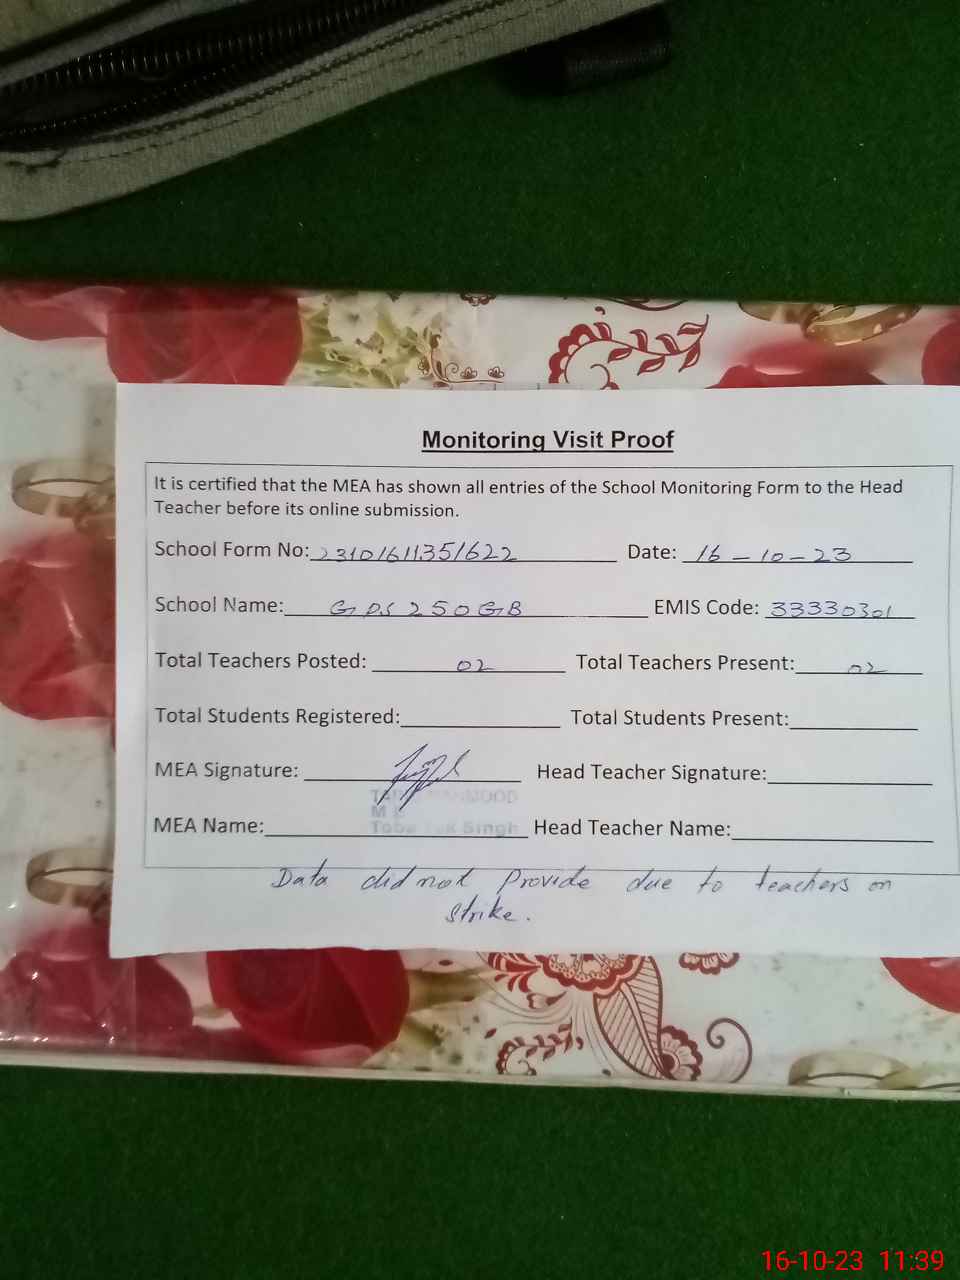 Monitoring Visit Proof
It is certified that the MEA has shown all entries of the School Monitoring Form to the Head
Teacher before its online submission.
School Form No: 23101611351622 Date: 16-10-23
School Name: GPS 250 GB EMIS Code: 33330301
Total Teachers Posted: 02 Total Teachers Present: 02
Total Students Registered: Total Students Present:
MEA Signature: Head Teacher Signature:
MEA Name: Head Teacher Name:
Singh
Data did not Provide due to teachers on
strike.
16-10-23 11:39